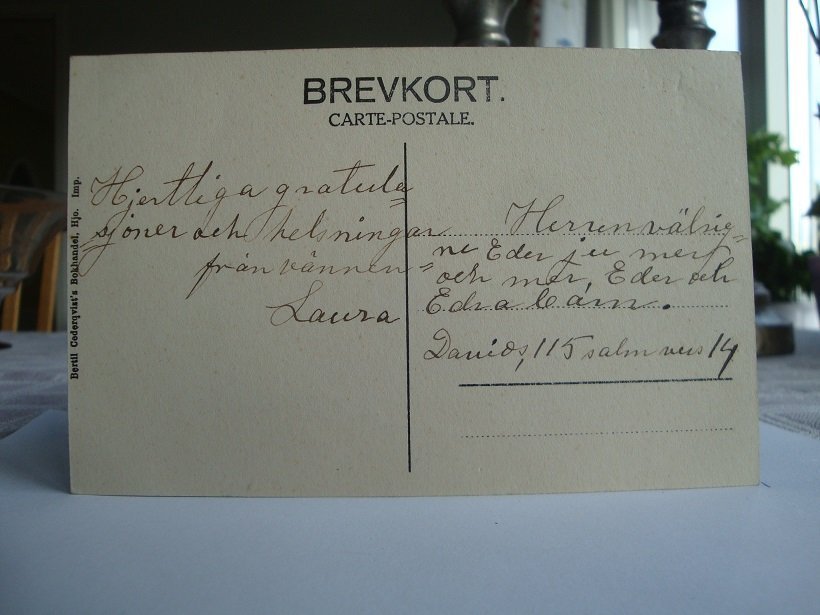 BREVKORT.
CARTE-POSTALE.
Bertil Cederqvist's Bokhandel, Hjo. Imp.
Hjertliga gratula=
=sjoner och helsningar
från vännen=
Laura
Herren välsig=
ne Eder ju mer
och mer, Eder och
Edra barn.
Davids, 115 salm vers 14